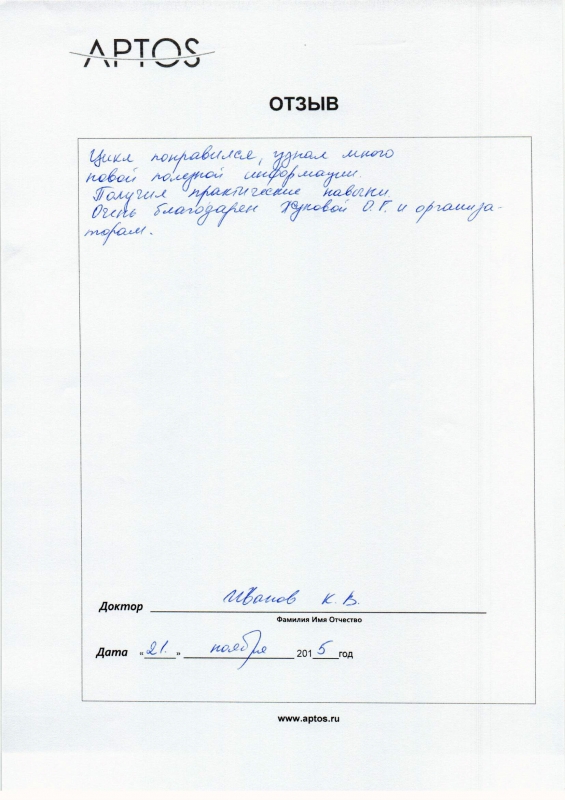 APTOS
ОТЗЫВ
Цикл понравился, узнал много
новой полезной информации.
Получил практические навыки.
Очень благодарен Жуковой О.Г. и организа-
торам.
Доктор Иванов К. В.
Фамилия Имя Отчество
Дата «21.» ноября 2015 год
www.aptos.ru